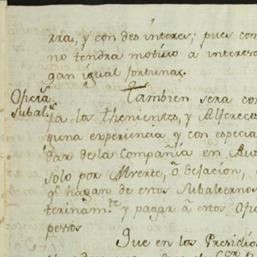 rra, y con desinteres; pues com
no tendra motivo a interes
gan igual fortuna.
Ofici.s Subal.s
Tambien sera con
la los Thenientes, y Alfereces
guna experiencia y con especia
dar de la Compañia en Au
solo por Muerte, ó dejacion,
q.e hagan de estos Subalternos
terinam.te y pagar á estos Ofic
pestos
Que en los Presidio